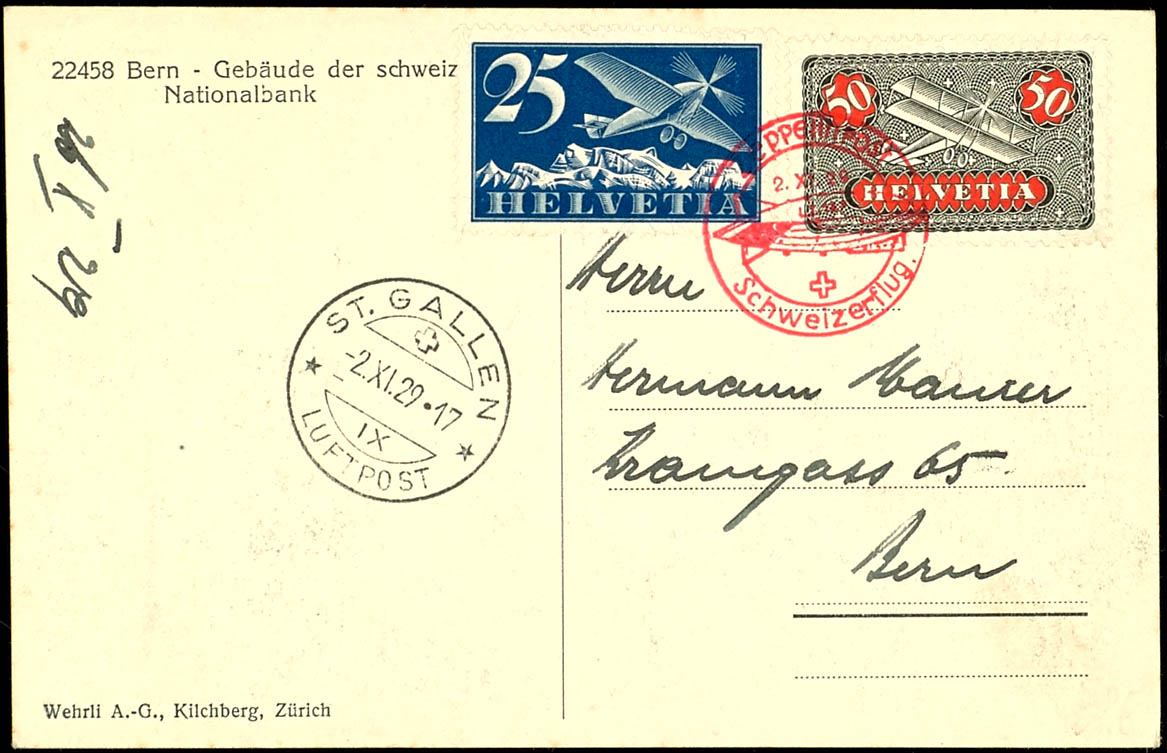 22458 Bern - Gebäude der schweiz
Nationalbank
25
HELVETIA
50
50
HELVETIA
Zeppelinpost
2. XI. 29
Schweizerflug.
ST. GALLEN
-2.XI.29.17
IX
LUFTPOST
Herrn
Hermann Maurer
Kramgass 65
Bern
Wehrli A.-G., Kilchberg, Zürich